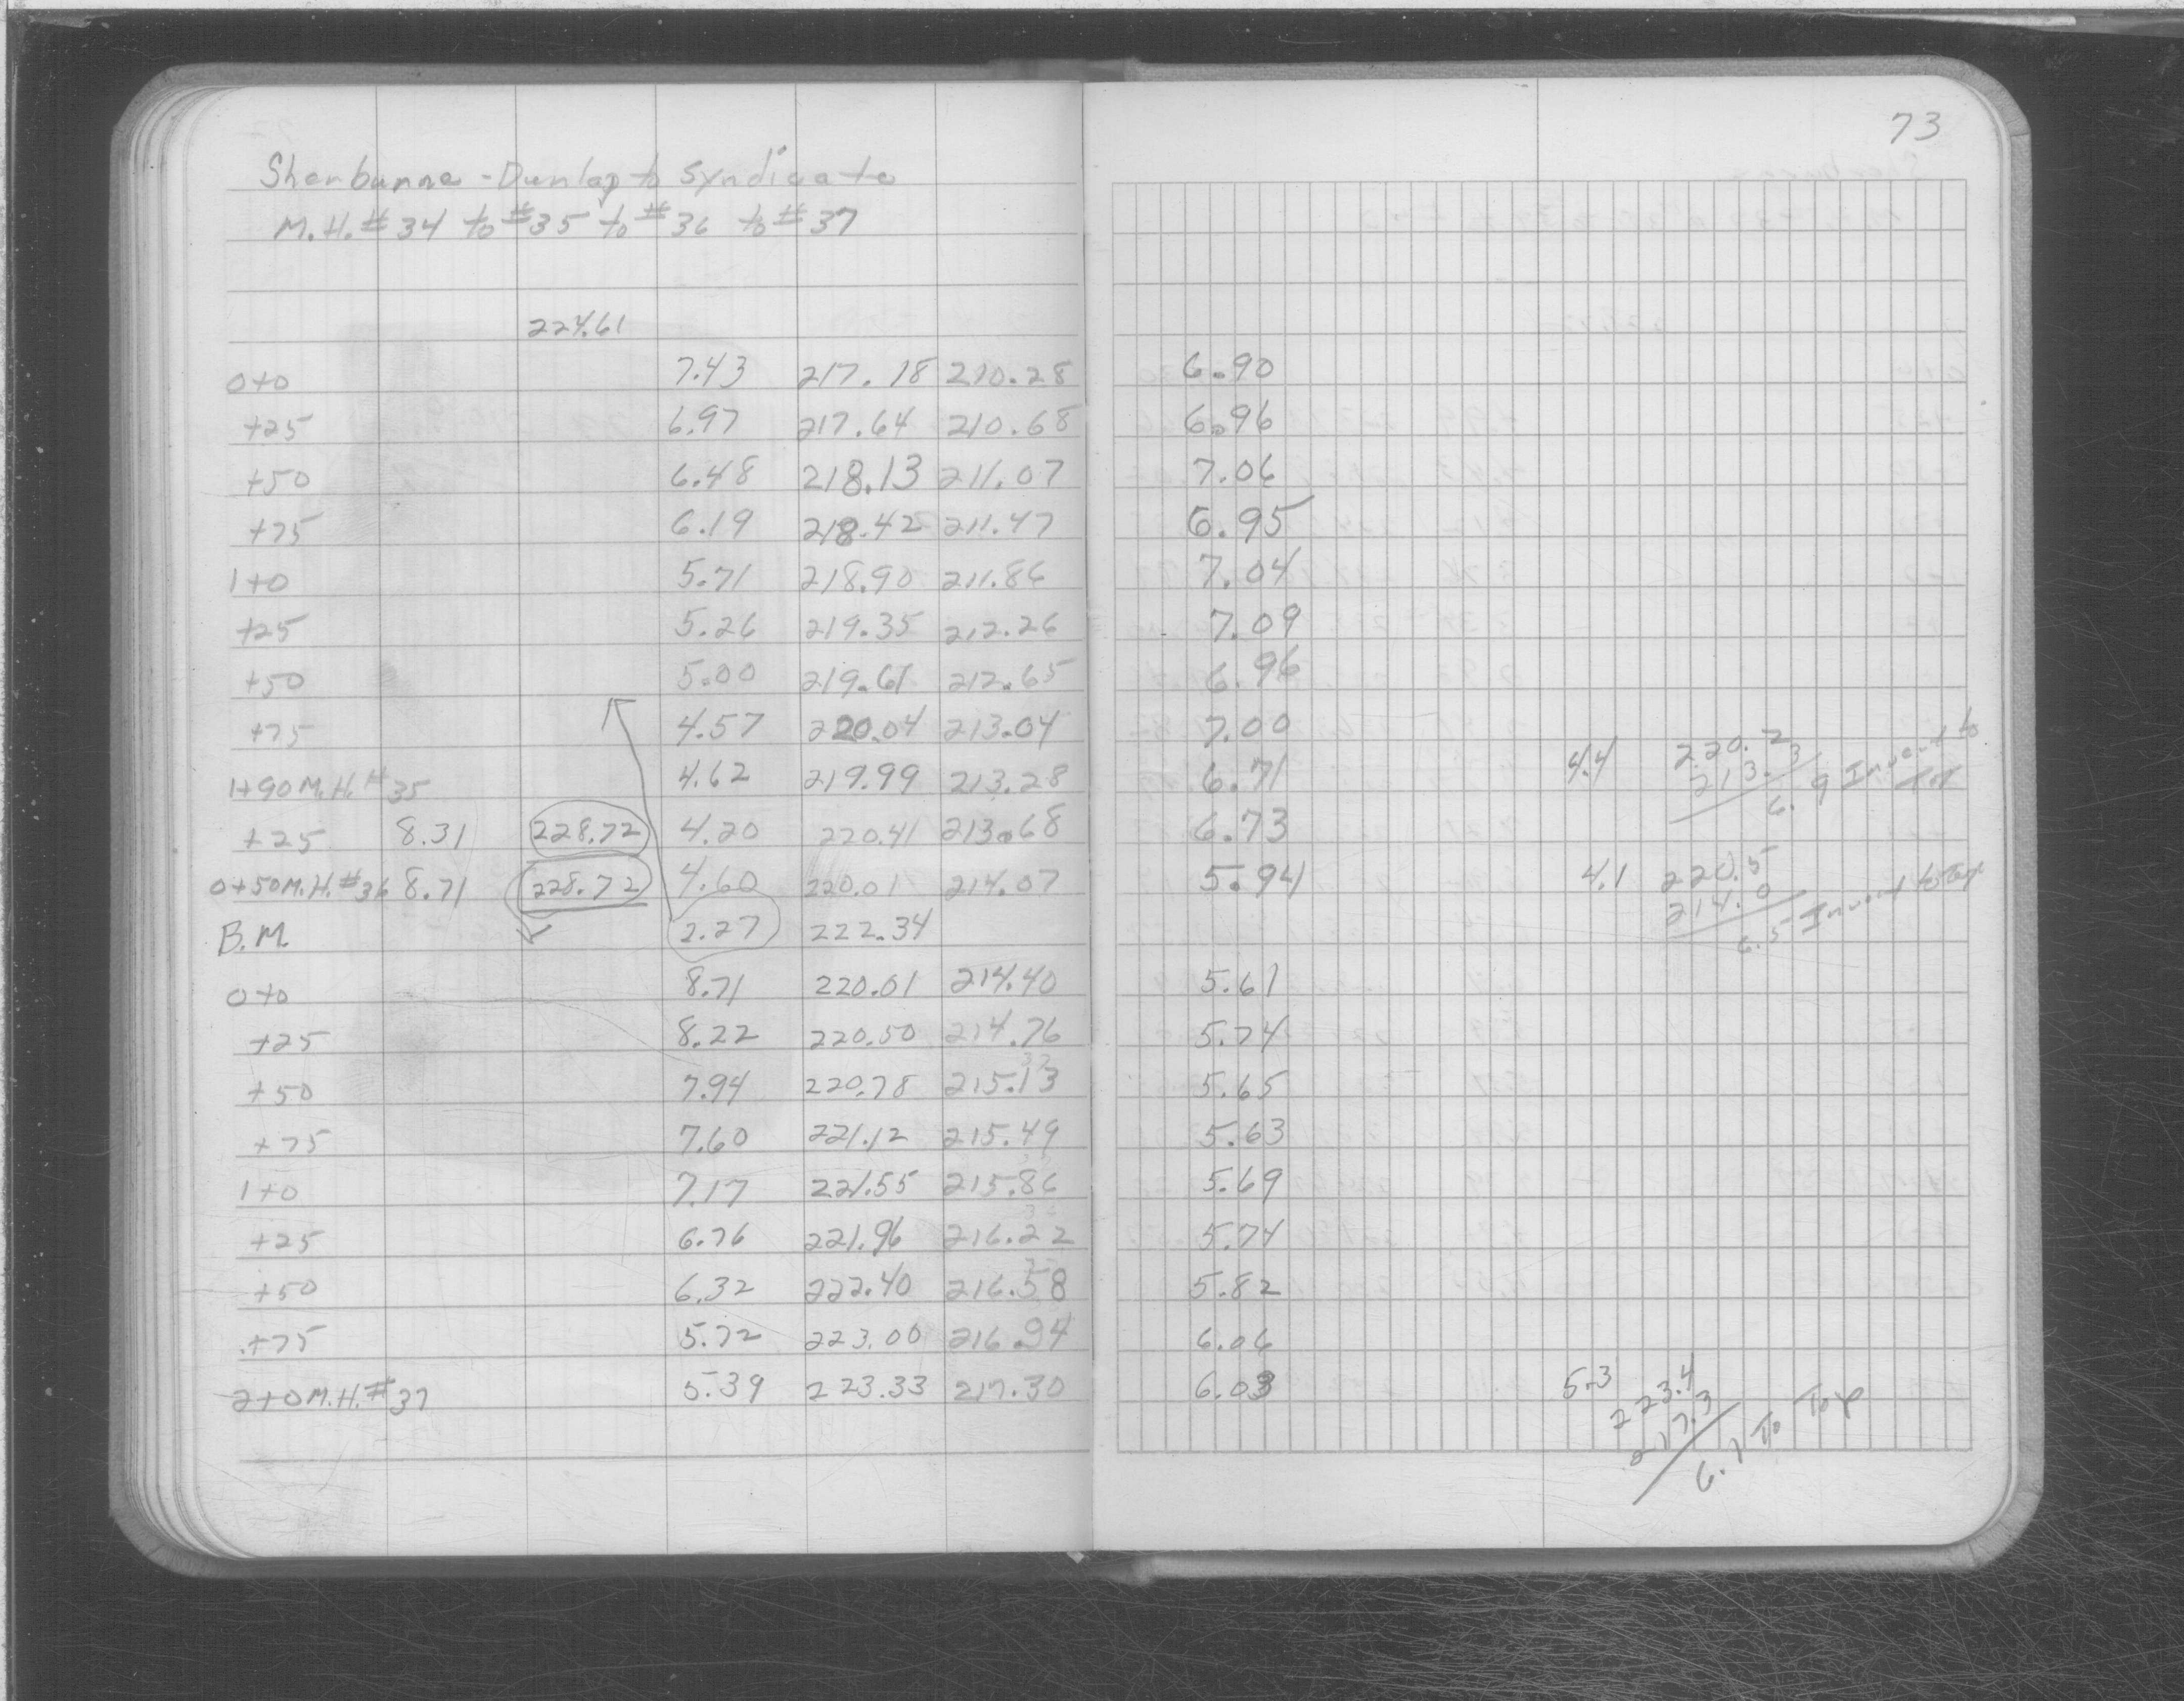 73
Sherburne - Dunlap to Syndicate
M.H. #34 to #35 to #36 to #37
224.61
0+0 7.43 217.18 210.28 6.90
+25 6.97 217.64 210.68 6.96
+50 6.48 218.13 211.07 7.06
+75 6.19 218.42 211.47 6.95
1+0 5.71 218.90 211.86 7.04
+25 5.26 219.35 212.26 7.09
+50 5.00 219.61 212.65 6.96
+75 4.57 220.04 213.04 7.00
1+90 M.H. #35 4.62 219.99 213.28 6.71 4.4 220.2
213.3
6.9 Invert to Top
+25 8.31 228.72 4.20 220.41 213.68 6.73
0+50 M.H. #36 8.71 228.72 4.60 220.01 214.07 5.94 4.1 220.5
214.0
6.5 Invert to Top
B.M. 2.27 222.34
0+0 8.71 220.01 214.40 5.61
+25 8.22 220.50 214.76 5.74
+50 7.94 220.78 215.13 5.65
+75 7.60 221.12 215.49 5.63
1+0 7.17 221.55 215.86 5.69
+25 6.76 221.96 216.22 5.74
+50 6.32 222.40 216.58 5.82
+75 5.72 223.00 216.94 6.06
2+0 M.H. #37 5.39 223.33 217.30 6.03 5.3 223.4
217.3
6.1 To Top